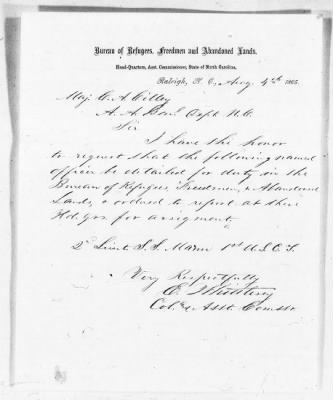 Bureau of Refugees, Freedmen and Abandoned Lands,
Head-Quarters, Asst. Commissioner, State of North Carolina,
Raleigh, N. C., Aug 4th 1865.
Maj. C. A. Cilley
A. A. Genl Dept N.C.
Sir
I have the honor
to request that the following named
officer be detailed for duty in the
Bureau of Refugees Freedmen, & Abandoned
Lands, & ordered to report at these
Hd. Qrs. for assignment.
2d Lieut. S. S. 1st U.S.C.T.
Very Respectfully
E. Whittlesey
Col. & Asst. Commr